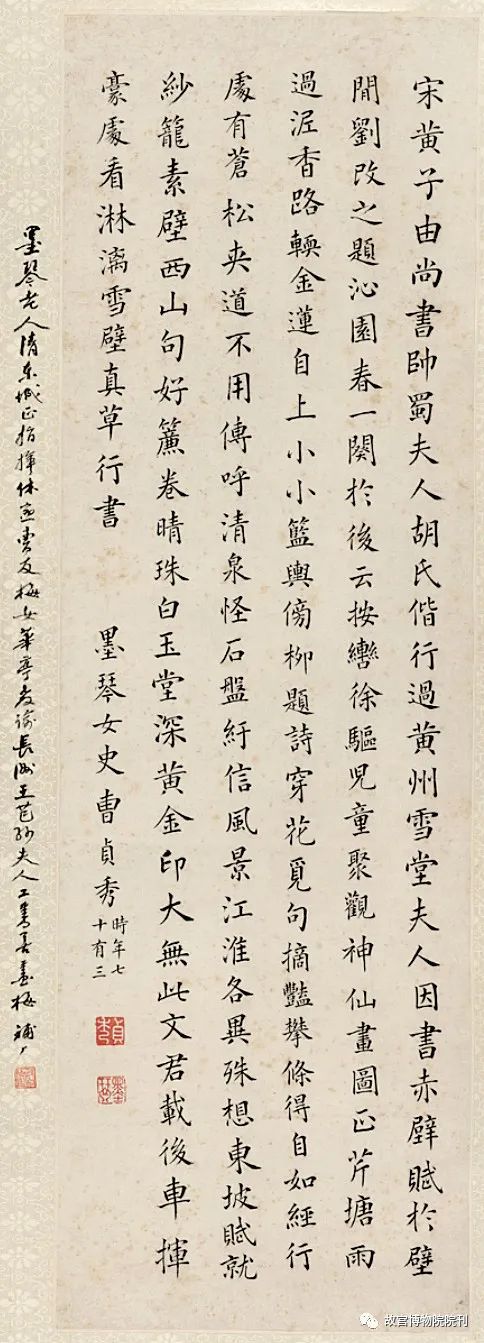 宋黄子由尚書帥蜀夫人胡氏偕行過黄州雪堂夫人因書赤壁賦於壁
間劉改之題沁園春一闋於後云按轡徐驅兒童聚觀神仙畫圖正芹塘雨
過泥香路輭金蓮自上小小籃輿傍栁題詩穿花覓句摘豔攀條得自如經行
處有蒼松夾道不用傳呼清泉怪石盤紆信風景江淮各異殊想東坡賦就
紗籠素壁西山句好簾卷晴珠白玉堂深黄金印大無此文君載後車揮
豪處看淋漓雪壁真草行書
墨琴女史曹貞秀
時年七
十有三
貞秀
墨琴
墨琴老人清東城正指揮休寧曹友梅女華亭教諭長洲王芑孫夫人工書善畫梅
故宫博物院院刊